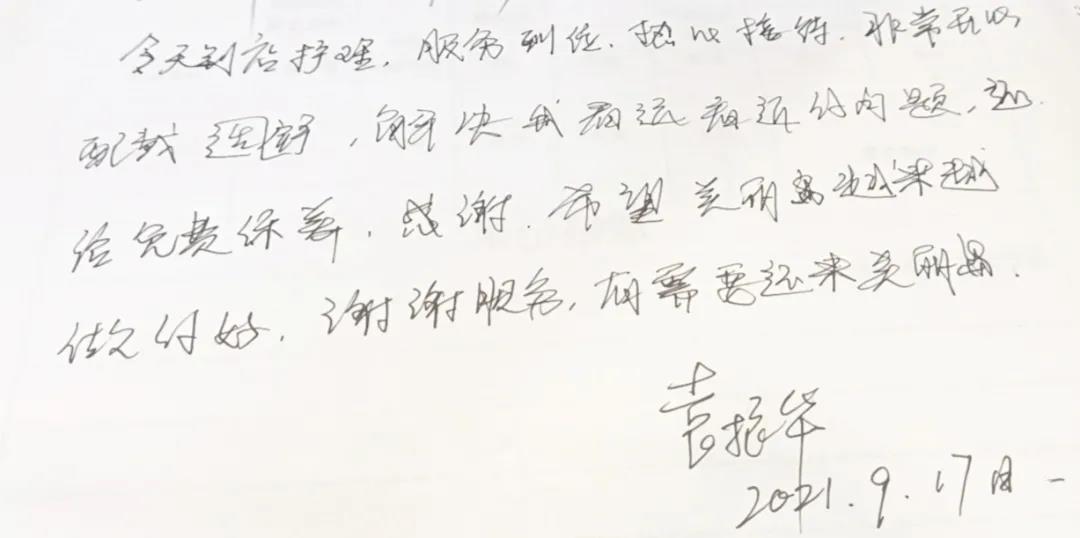 今天到店护理，服务到位．热心接待．非常开心
配戴适舒，解决我看远看近的问题，还
给免费保养．感谢．希望美丽岛越来越
做的好．谢谢服务，有需要还来美丽岛．
袁振华
2021.9.17日